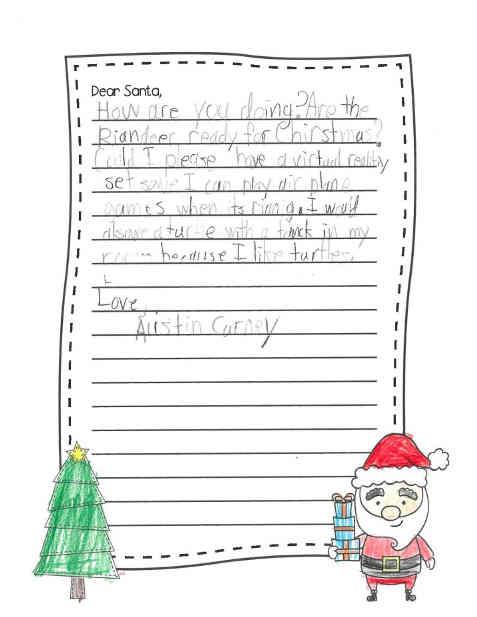 Dear Santa,
How are you doing? Are the
Riandeer ready for Chirstmas?
Culd I please have a virtual reality
set so I can play air plane
games when its rining. I would
also a turtle with a tank in my
room because I like turtles.
L
Love,
Austin Carney